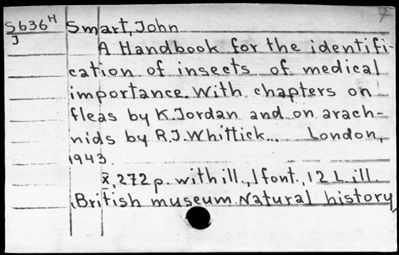 S636H Smart, John
J
A Handbook for the identifi-
cation of insects of medical
importance. With chapters on
fleas by K. Jordan and on arach-
nids by R.J. Whittick... London,
1943.
x, 272 p. with ill., 1 font., 12 L. ill.
(British museum. Natural history